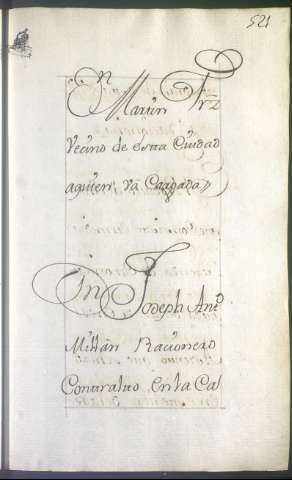 521
Dn Martin Frz
Vecino de esta Ciudad
aquien va Cargada
Dn Joseph Anto
Millán Racionero
Contralto En la Ca